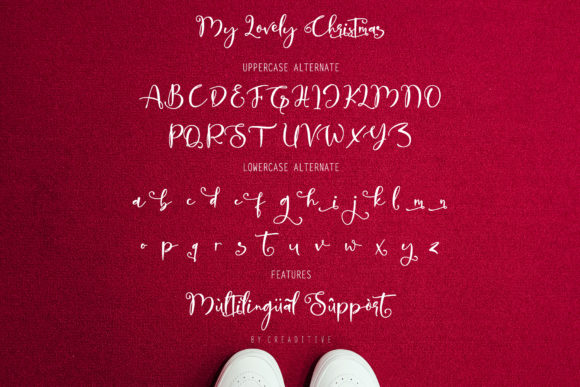 My Lovely Christmas
UPPERCASE ALTERNATE
ABCDEFGHIJKLMNO
PQRSTUVWXYZ
LOWERCASE ALTERNATE
a b c d e f g h i j k l m n
o p q r s t u v w x y z
FEATURES
Mùltilingüâl Sûppòrt
BY CREADITIVE